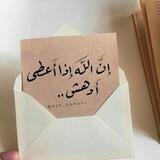 إنَّ اللّه إذا أعطى
أدهش..